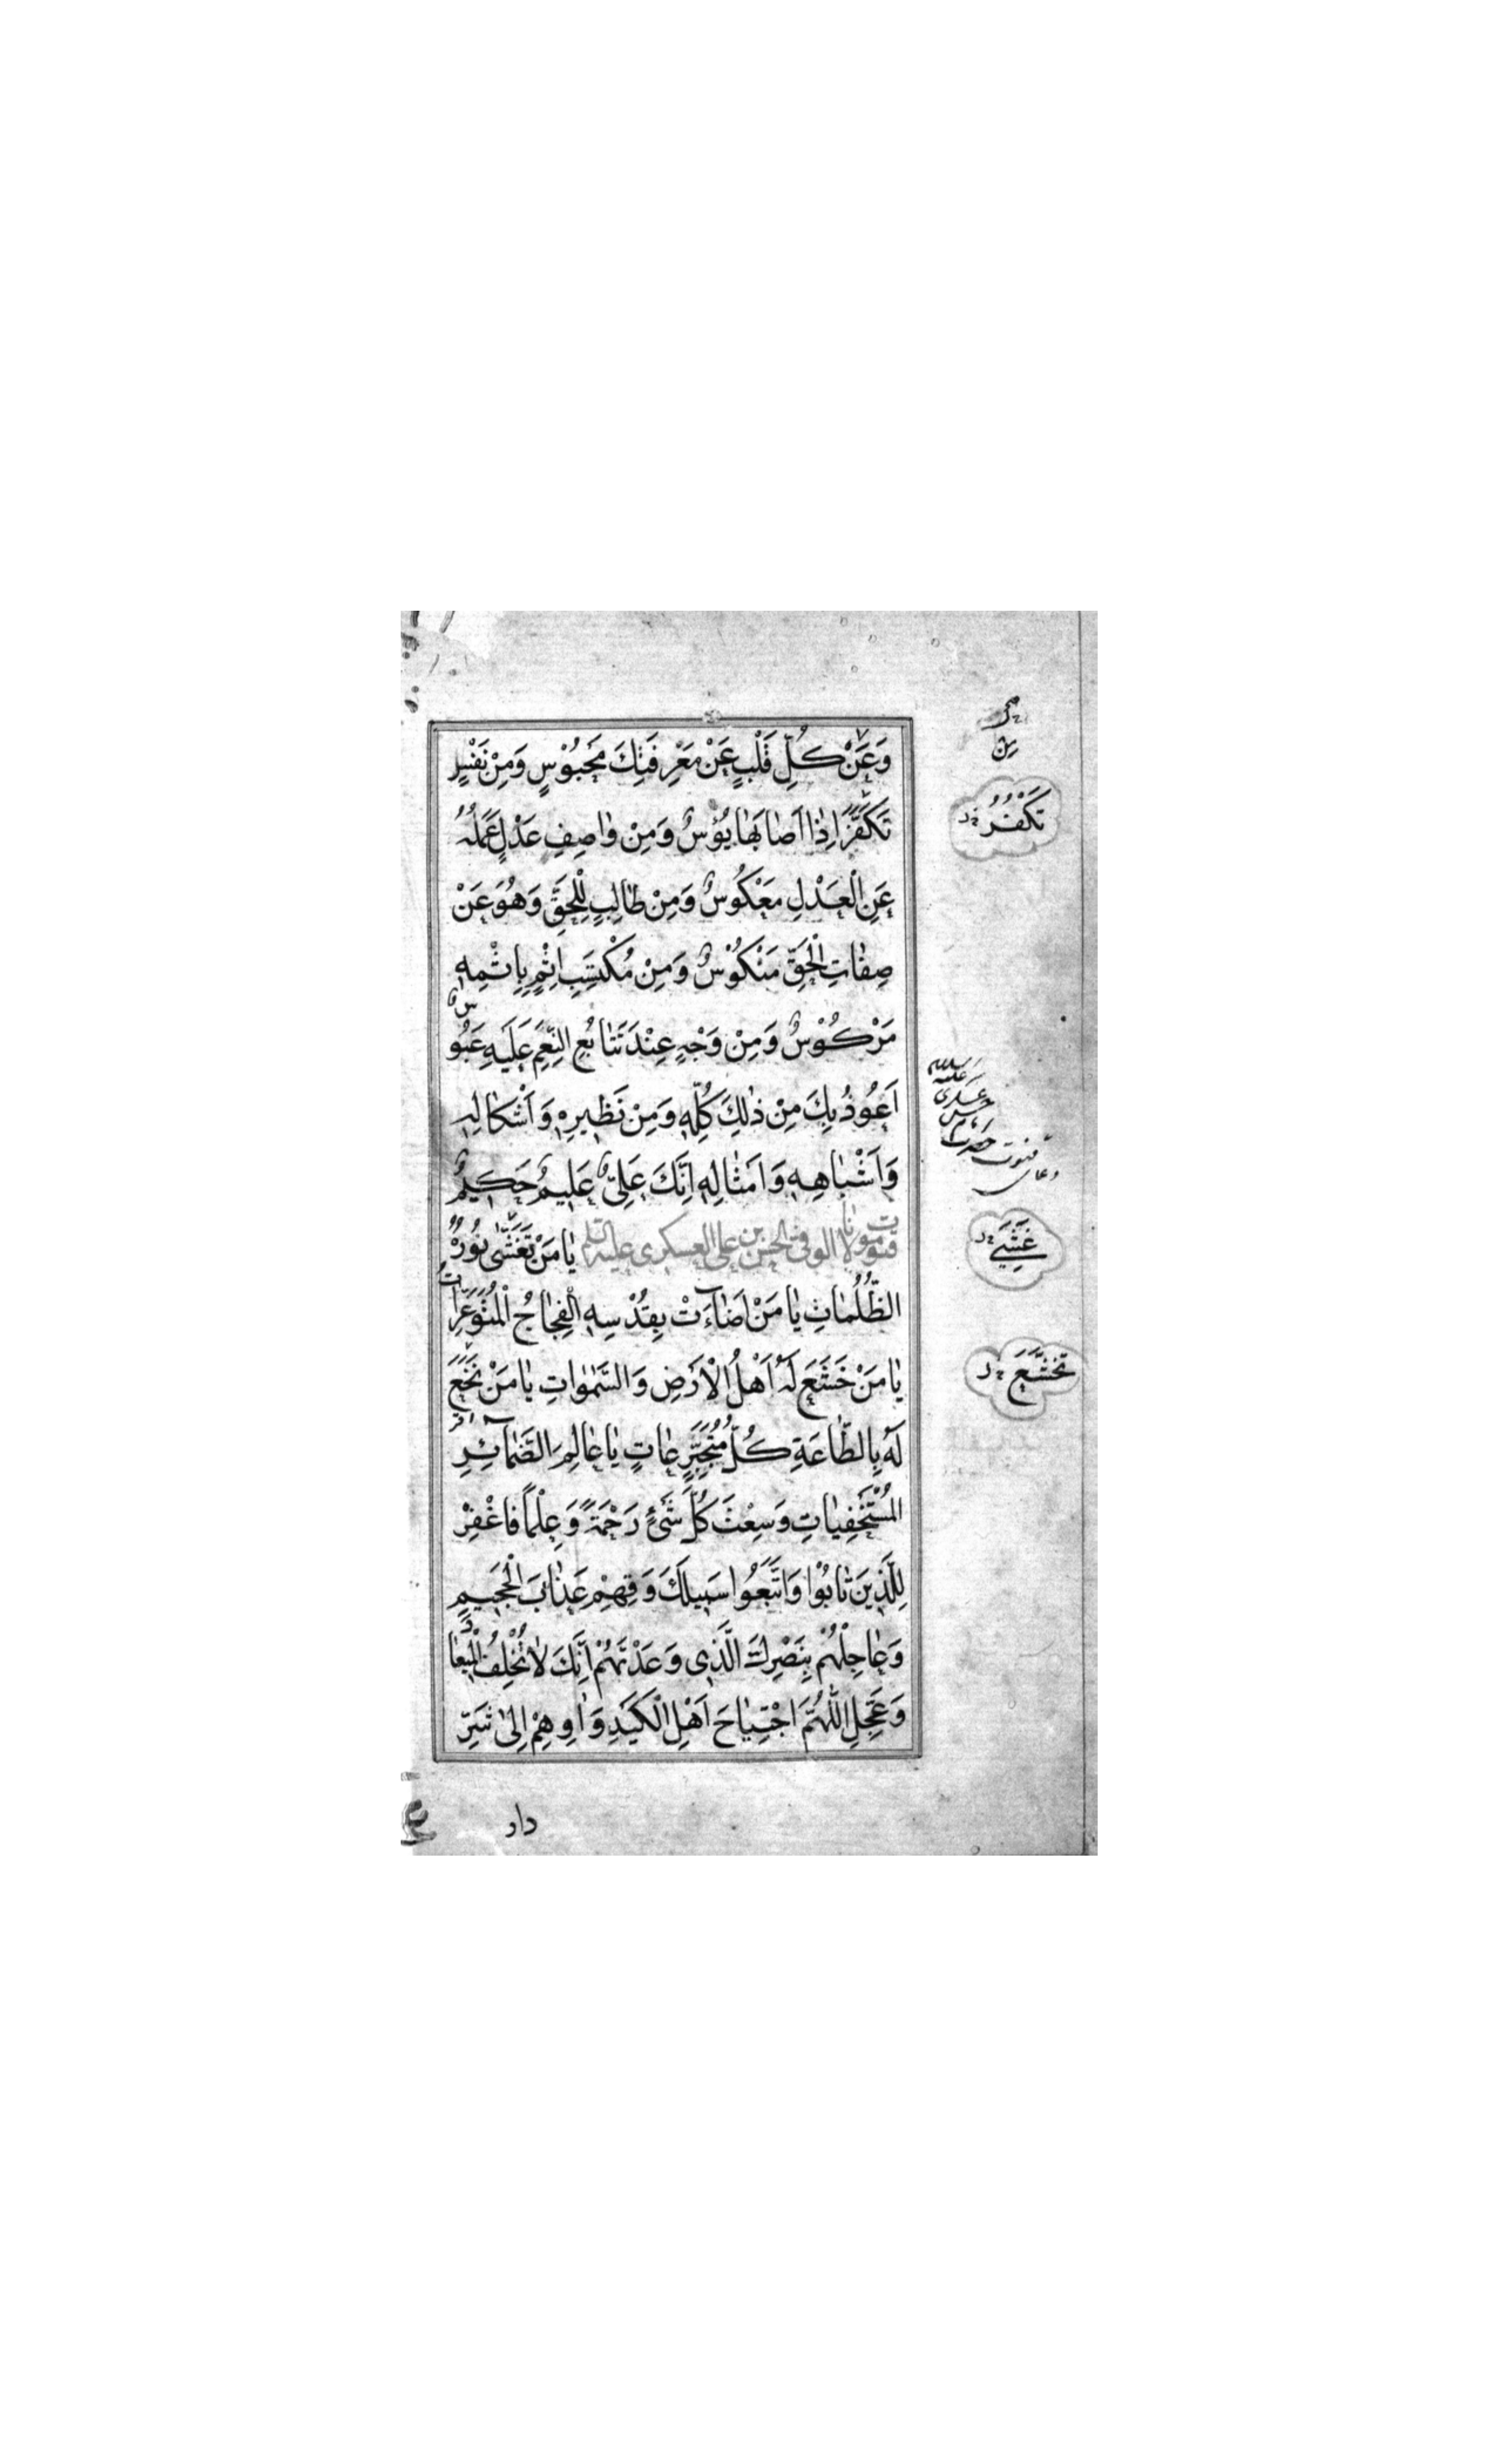 وَعَنْ كُلِّ قَلْبٍ عَنْ مَعْرِفَتِكَ مَحْبُوْسٍ وَمِنْ نَفْسٍ
تَكَفَّرَ اِذٰا اَصٰابَهٰا بُؤْسٌ وَمِنْ وٰاصِفِ عَدْلٍ عَمَلُهُ
عَنِ الْعَدْلِ مَعْكُوسٌ وَمِنْ طٰالِبٍ لِلْحَقِّ وَهُوَ عَنْ
صِفٰاتِ الْحَقِّ مَنْكُوْسٌ وَمِنْ مُكْتَسِبِ اِثْمٍ بِاِثْمِهِ
مَرْكُوْسٌ وَمِنْ وَجْهٍ عِنْدَ تَتٰابُعِ النِّعَمِ عَلَيْهِ عَبُوسٌ
اَعُوذُ بِكَ مِنْ ذٰلِكَ كُلِّهِ وَمِنْ نَظِيرِهِ وَاَشْكٰالِهِ
وَاَشْبٰاهِهِ وَاَمْثٰالِهِ اِنَّكَ عَلِىٌّ عَلِيمٌ حَكِيمٌ
قنوت مولانا الوفى الحسن بن على العسكرى عليه السلم يٰا مَنْ تَغَشّٰى نُورُهُ
الظُّلُمٰاتِ يٰا مَنْ اَضٰاءَتْ بِقُدْسِهِ الْفِجٰاجُ الْمُتَوَعِّرٰاتُ
يٰا مَنْ خَشَعَ لَهُ اَهْلُ الْاَرْضِ وَالسَّمٰوٰاتِ يٰا مَنْ بَخَعَ
لَهُ بِالطّٰاعَةِ كُلُّ مُتَجَبِّرٍ عٰاتٍ يٰا عٰالِمَ الضَّمٰائِرِ
الْمُسْتَخْفِيٰاتِ وَسِعْتَ كُلَّ شَىْءٍ رَحْمَةً وَعِلْماً فَاغْفِرْ
لِلَّذِينَ تٰابُوْا وَاتَّبَعُوا سَبِيلَكَ وَقِهِمْ عَذٰابَ الْجَحِيمِ
وَعٰاجِلْهُمْ بِنَصْرِكَ الَّذِى وَعَدْتَهُمْ اِنَّكَ لٰا تُخْلِفُ الْمِيعٰادَ
وَعَجِّلِ اللّٰهُمَّ اجْتِيٰاحَ اَهْلِ الْكَيْدِ وَاٰوِهِمْ اِلىٰ شَرِّ
دار
تَكْفُرُ
دعاى قنوت حضرت امام حسن عسكرى عليه السلام
غَشِيَ
تَخَشَّعَ